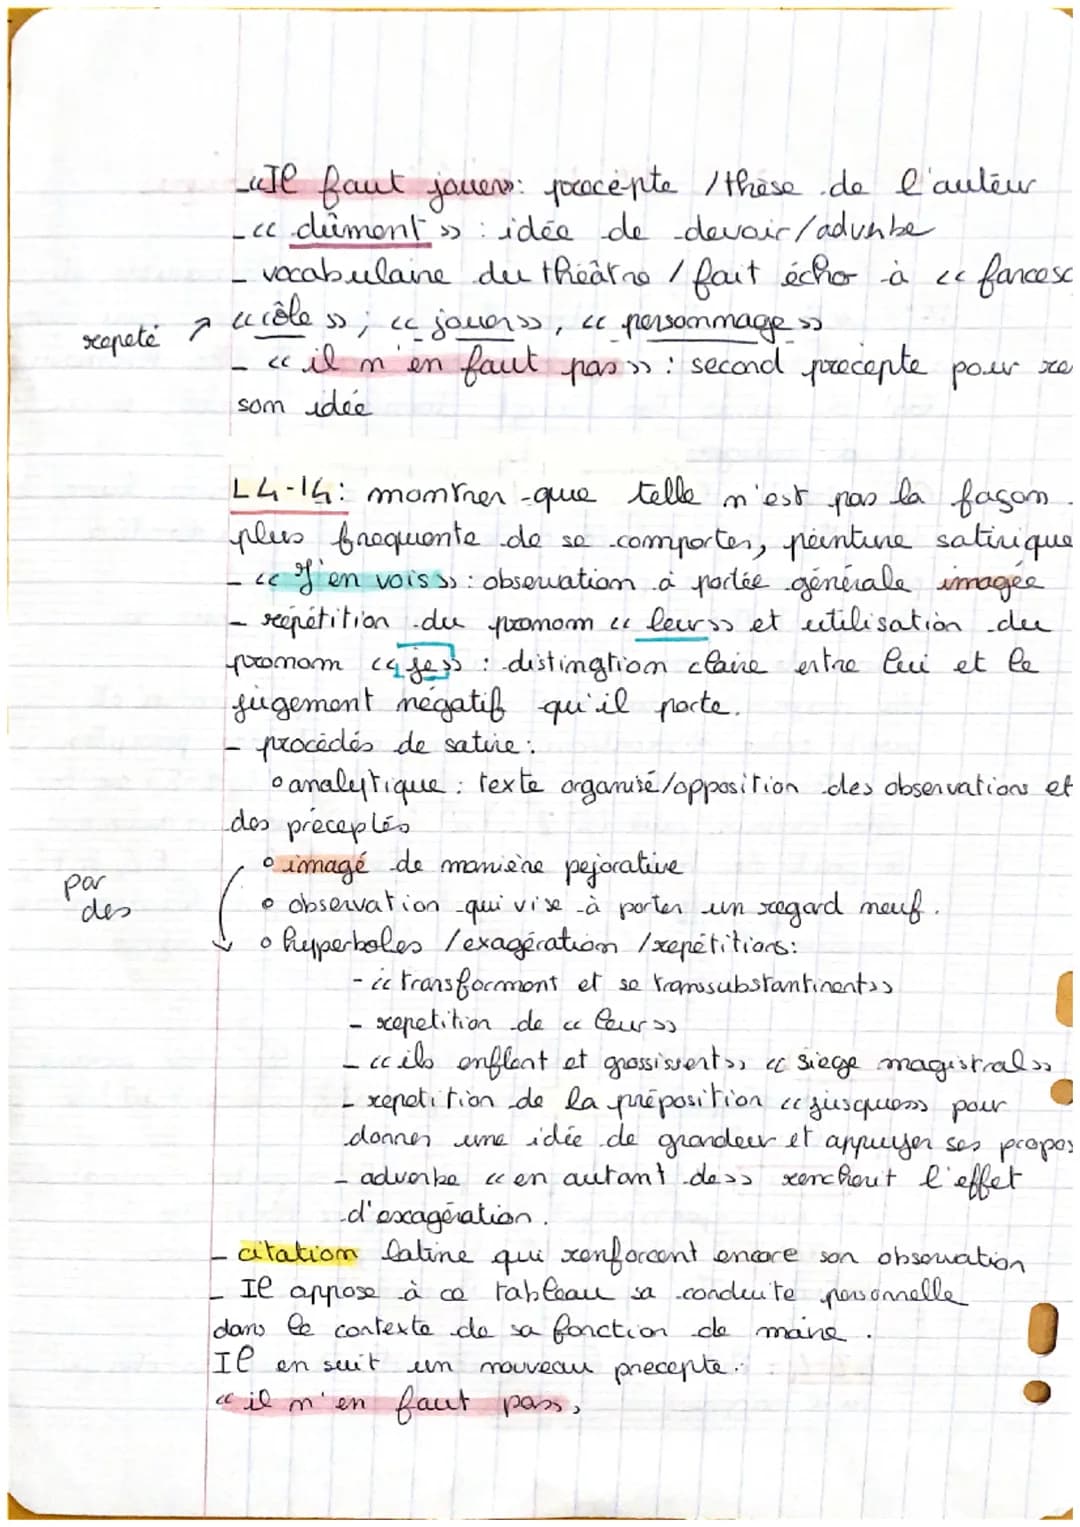 - «Il faut jouer»: précépte / thèse de l'auteur
- « dûment » : idée de devoir/adverbe
- vocabulaire du théâtre / fait écho à « farcesc
repeté ↗ « rôle » ; « jouer », « personnage »
- « il n'en faut pas » : second précepte pour re
son idée
L4-14: montrer que telle n'est pas la façon
plus frequente de se comporter, peinture satirique
- « J'en vois » : observation à portée générale imagée
- répétition du pronom « leur » et utilisation du
pronom « je » : distingtion claire entre lui et le
jugement négatif qu'il porte.
- procédés de satire :
o analytique : texte organisé/opposition des observations et
des préceptes
o imagé de manière pejorative
par des
o observation qui vise à porter un regard neuf.
o hyperboles / exagération / repétitions:
- « transforment et se transsubstantinent»
- repetition de « leur »
- « ils enflent et grossissent», « siege magistral »
- repetition de la préposition « jusques» pour
donner une idée de grandeur et appuyer ses propos
- adverbe « en autant de» renchérit l'effet
d'exagération.
- citation latine qui renforcent encore son observation
- Il appose à ce tableau sa conduite personnelle
dans le contexte de sa fonction de maire.
Il en suit un nouveau precepte:
« il n'en faut pas»,